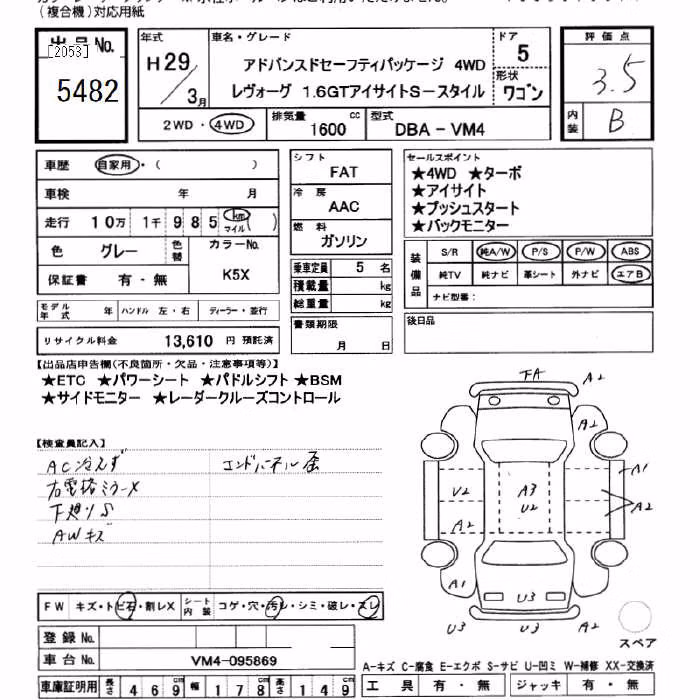 (複合機)対応用紙
出品No.
[2053]
5482
年式
H29/3月
車名・グレード
アドバンスドセーフティパッケージ 4WD
レヴォーグ 1.6GTアイサイトS-スタイル
ドア
5
形状
ワゴン
評価点
3.5
内装
B
2WD・4WD
排気量
1600 cc
型式
DBA-VM4
車歴 自家用・( )
車検 年 月
走行 10万 1千 985 km マイル ( )
色 グレー 色替
カラーNo.
K5X
保証書 有・無
モデル年式 年 ハンドル 左・右 ディーラー・並行
リサイクル料金 13,610 円 預託済
シフト
FAT
冷房
AAC
燃料
ガソリン
乗車定員 5 名
積載量 kg
総重量 kg
書類期限
月 日
セールスポイント
★4WD ★ターボ
★アイサイト
★プッシュスタート
★バックモニター
装備品
S/R 純A/W P/S P/W ABS
純TV 純ナビ 革シート 外ナビ エアB
ナビ型番:
後日品
【出品店申告欄(不良箇所・欠品・注意事項等)】
★ETC ★パワーシート ★パドルシフト ★BSM
★サイドモニター ★レーダークルーズコントロール
【検査員記入】
AC冷えず
エンドパネル歪
右電格ミラーX
下廻りS
AWキズ
FA A2
A2
A1
U2 A3 U2
A2
A2
A1 U3 A2
U3 U3
スペア
FW キズ・トビ石・割レX
シート内装 コゲ・穴・汚レ・シミ・破レ・スレ
登録No.
車台No. VM4-095869
車庫証明用 長さ 469 cm 幅 178 cm 高さ 149 cm
A-キズ C-腐食 E-エクボ S-サビ U-凹ミ W-補修 XX-交換済
工具 有・無 ジャッキ 有・無